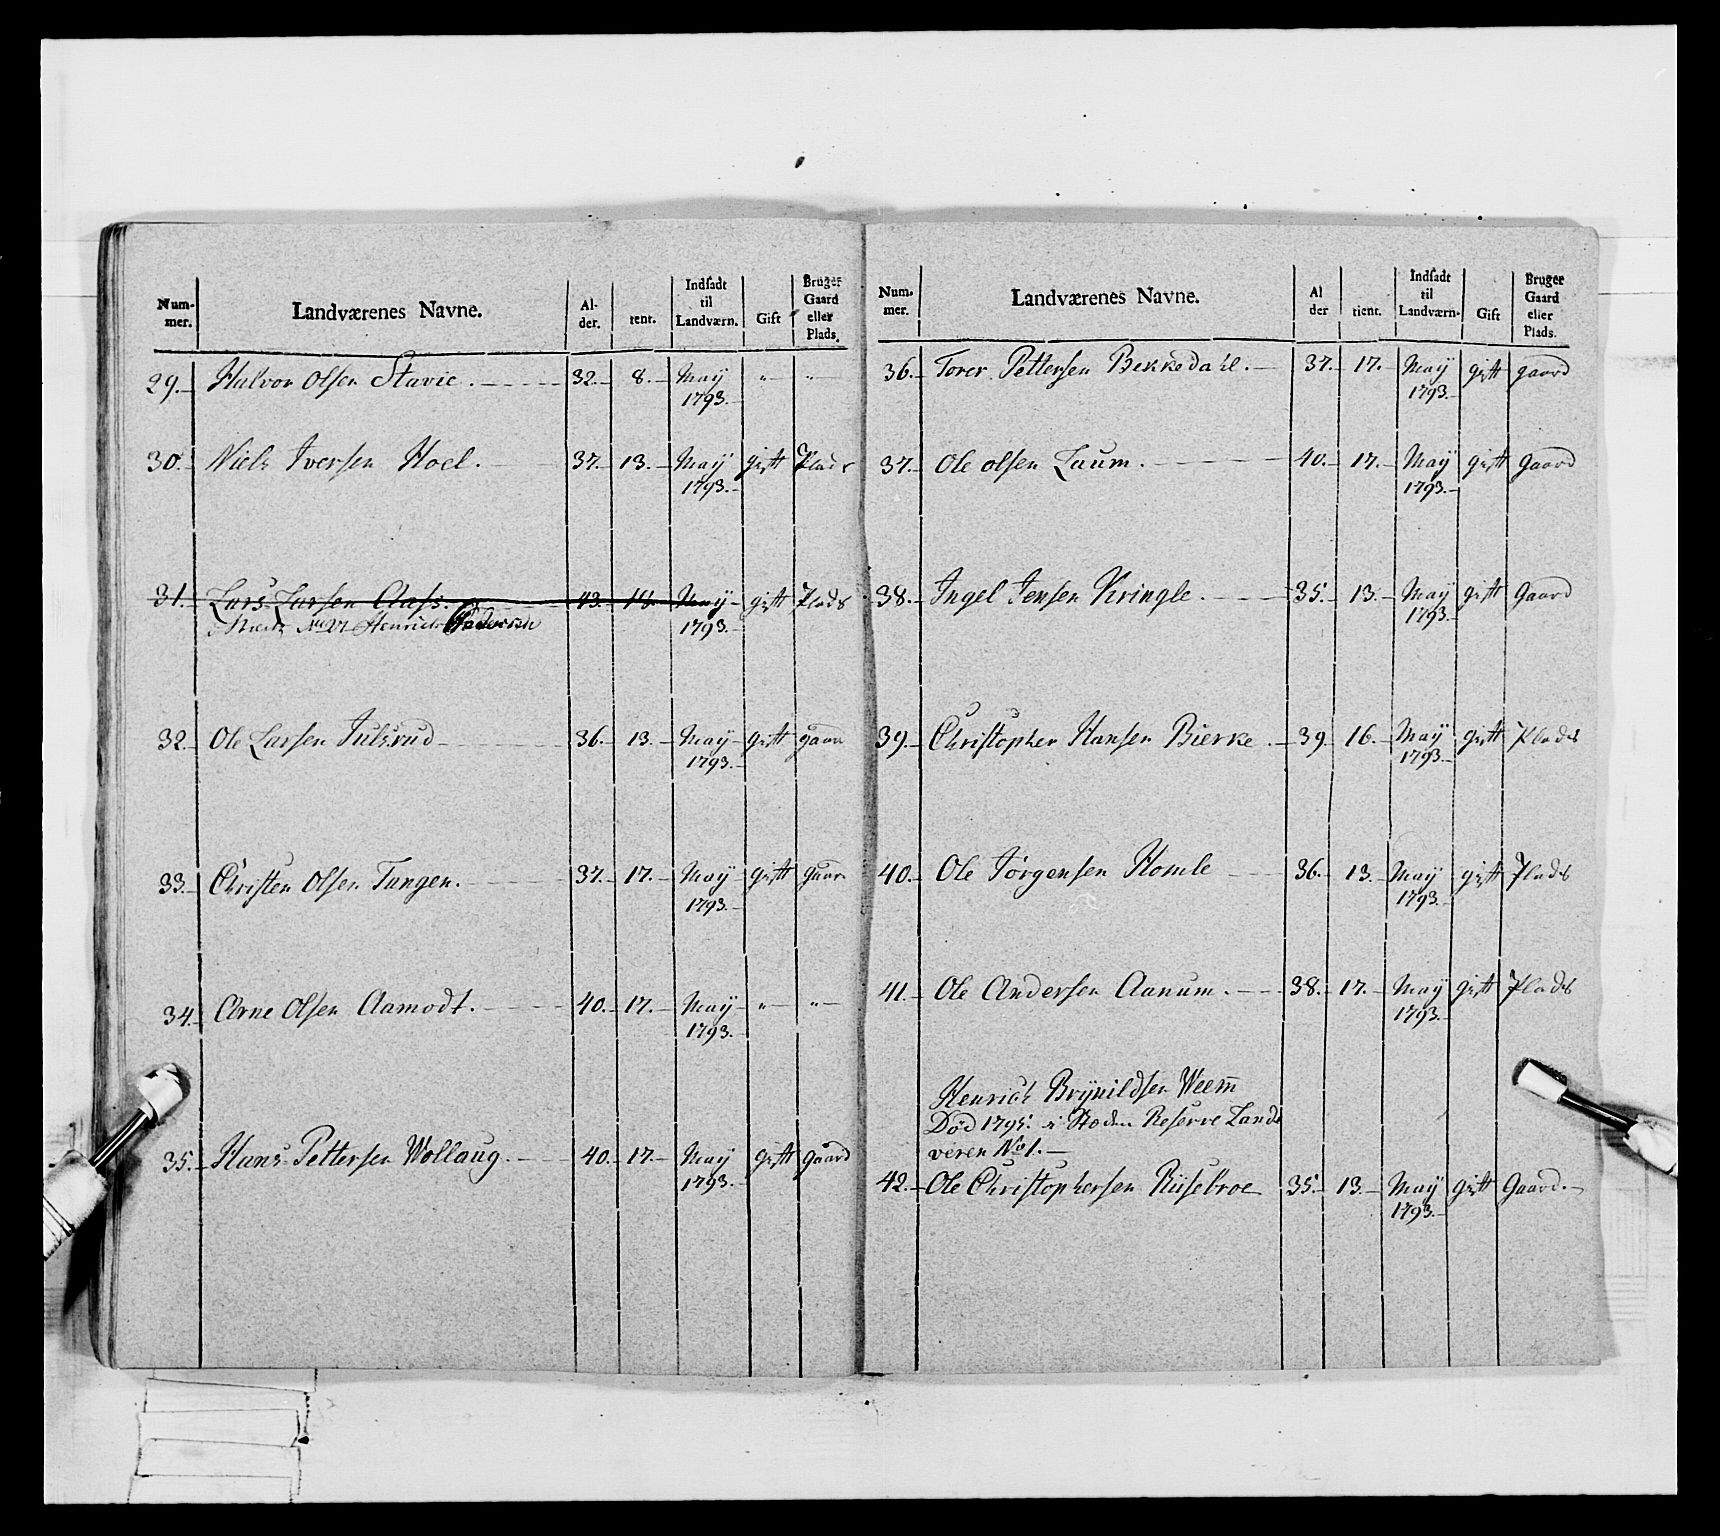 Num-
mer.
Landværenes Navne.
Al-
der.
tent.
Indsadt
til
Landværn.
Gift
Bruger
Gaard
eller
Plads.
29. Halvor Olsen Stavie. 32. 8. May " "
1793.
30. Niels Iversen Hoel. 37. 13. May gift Plads
1793.
31. Lars Larsen Aass. 43. 14. May gift Plads
Henrich Pedersen 1793.
32. Ole Larsen Julsrud 36. 13. May gift gaar
1793.
33. Christen Olsen Tangen. 37. 17. May gift gaar
1793.
34. Arne Olsen Aamodt. 40. 17. May " "
1793.
35. Hans Pettersen Wollaug. 40. 17. May gift gaard
1793.
Num-
mer.
Landværenes Navne.
Al
der
tient.
Indsadt
til
Landværn.
Gift
Bruger
Gaard
eller
Plads.
36. Torer Pettersen Bekkedahl. 37. 17. May gift gaard
1793.
37. Ole Olsen Laum. 40. 17. May gift gaard
1793.
38. Ingel Jensen Kringle. 35. 13. May gift Gaard
1793.
39. Christopher Hansen Bierke. 39. 16. May gift Plads
1793.
40. Ole Jörgensen Homle 36. 13. May gift Plads
1793.
41. Ole Andersen Aanum. 38. 17. May gift Plads
1793.
Henrich Brynildsen Weem
Död 1795. Reserve Land
veren No 1.
42. Ole Christophersen Riisebroe 35. 13. May gift Gaard.
1793.